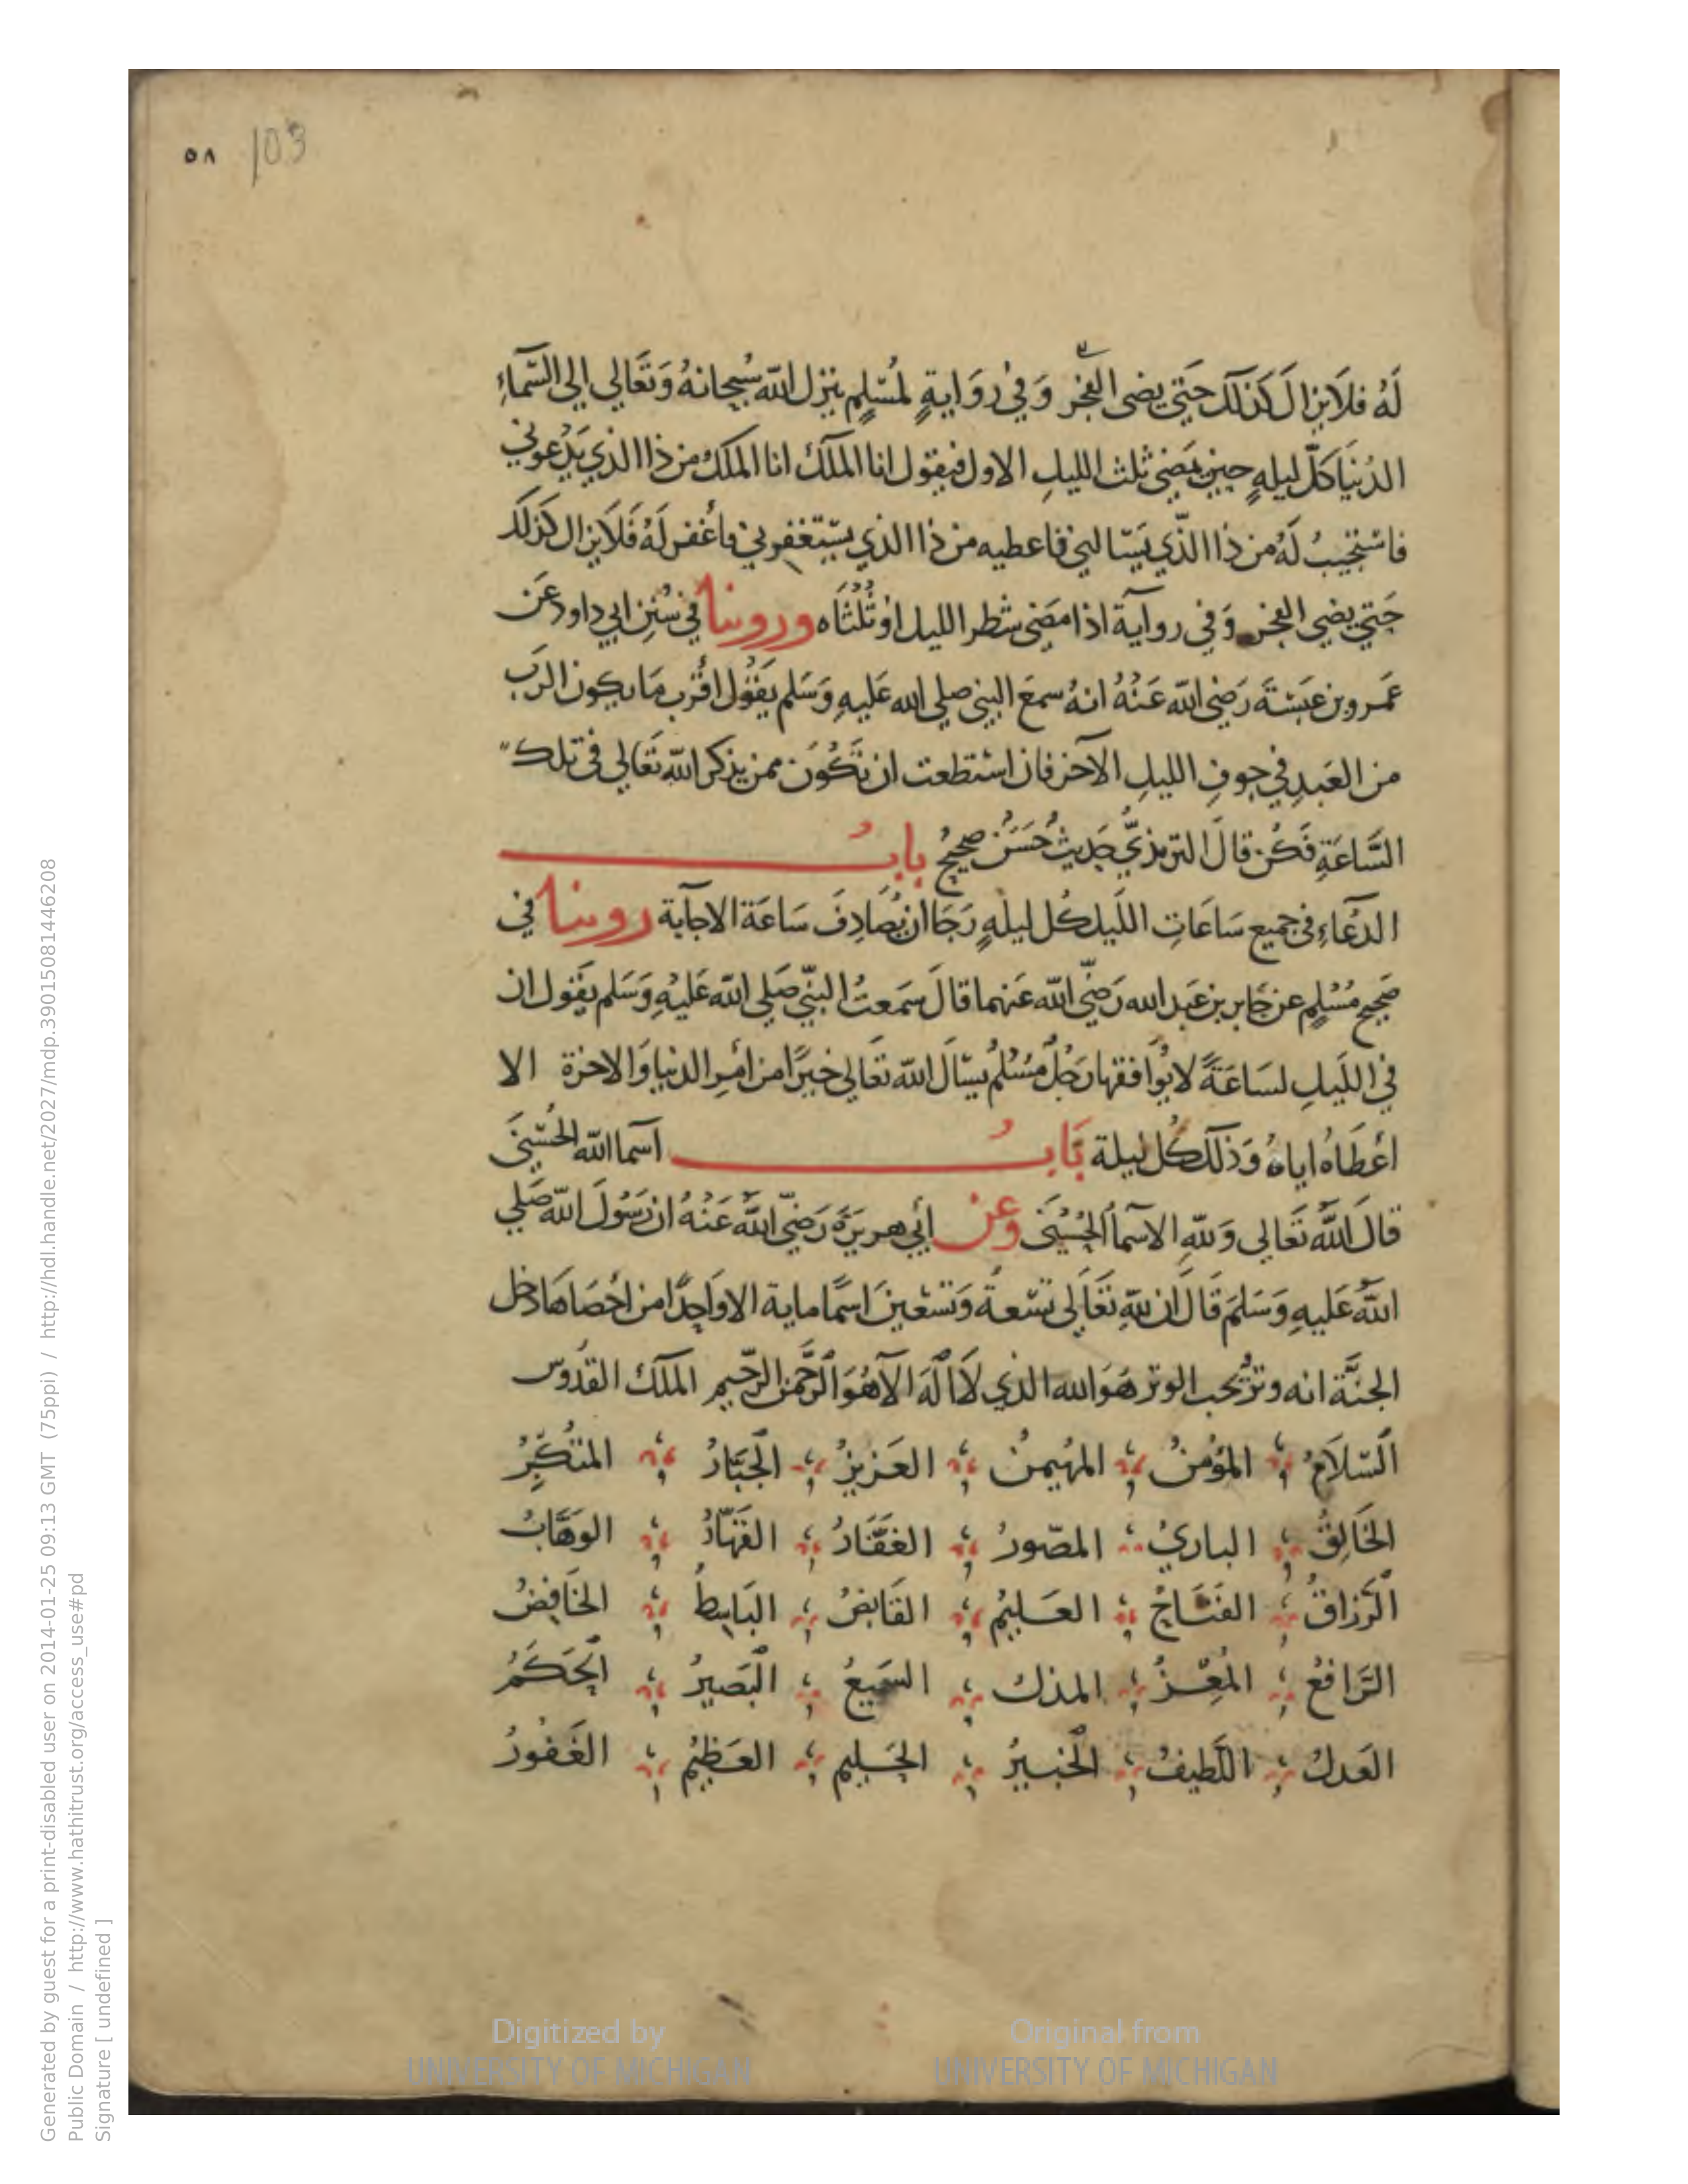 ٥٨ 103
لَهُ فلَا يزال كَذلك حَتي يضى الفجر وَفي روَايةٍ لمُسْلِم ينزل الله سُبحانهُ وَتعَالي الي السَّماءِ
الدُنيَا كلّ ليلهٍ حين يمَضي ثلث الليلِ الاول فيقول انا الملك انا الملك من ذا الذي يَدْعوني
فاستجيبُ لَهُ من ذا الذّي يَسَالني فاعطيه من ذا الذي يستغفرني فاُغفر لَهُ فَلَا يزال كذلك
حَتي يضي الفجر وَفي روايَة اذا مَضي شطر الليل اوْ ثُلُثَاه وروينا في سُنِن ابي داود عَن
عَمرو بن عَبسَةَ رَضي الله عَنْهُ انهُ سمعَ النبي صلي الله عَليهِ وَسَلم يَقُول اقُرب مَا يكون الرَب
من العَبدِ في جوفِ الليلِ الآخر فان استطعت ان تَكُوَن ممن يذكر الله تعَالي في تلك
السَّاعَةِ فَكُن قالَ الترمذيُّ حَديثُ حَسَنُ صحيحُ بابُ
الدعَاءِ في جميع سَاعَاتِ اللَيل كُل ليلهٍ رَجَا ان يُصَادِفَ سَاعَة الاجابة روينا في
صَحيح مُسْلِم عن جَابر بن عَبد الله رَضيّ الله عَنهما قالَ سَمعتُ النبيّ صَلي الله عَليهِ وَسَلم يَقول ان
في اللَيلِ لسَاعَةً لا يُوافقها رَجُلُ مُسْلمُ يسْالَ الله تعَالي خيرًا من اَمْرِ الدنيا وَالاخرة الا
اعْطَاهُ اياهُ وَذلك كُل ليلة بَابُ اسَما الله الحُسْنيَ
قالَ اللهُ تَعَالي وَللهِ الاسَما الحُسْنَى وعن اَبي هريرَةَ رَضيّ اللهُ عَنْهُ ان رَسُولَ الله صَلي
اللهُ عَليهِ وَسَلمَ قَالَ ان للهِ تعَالَى تسْعةً وَتسْعينَ اسمًا ماية الا واَحِدًا من اَحْصَاهَا دخل
الجنَّة انه وترُ يحب الوتر هَوَ الله الذي لاَ اِلَهَ الآهُوَ الرَّحمن الرّحيم الملك القدُوس
السّلاَمُ المُؤمنُ المهُيمنُ العَزيزُ الجَبَّارُ المتُكبِّرُ
الخَالِقُ الباريُ المصّورُ الغفَّارُ القَهّارُ الوَهَّابُ
الرَّزاقُ الفتَاحُ العَليمُ القَابضُ البَاسِطُ الخَافِضُ
الرَّافعُ المُعِزُّ المذلُ السَميعُ البَصيرُ الحَكَمُ
العَدلُ اللَطيفُ الخبيرُ الحَليم العَظيمُ الغَفُورُ
Generated by guest for a print-disabled user on 2014-01-25 09:13 GMT (75ppi) / http://hdl.handle.net/2027/mdp.39015081446208
Public Domain / http://www.hathitrust.org/access_use#pd
Signature [ undefined ]
Digitized by Original from
UNIVERSITY OF MICHIGAN UNIVERSITY OF MICHIGAN